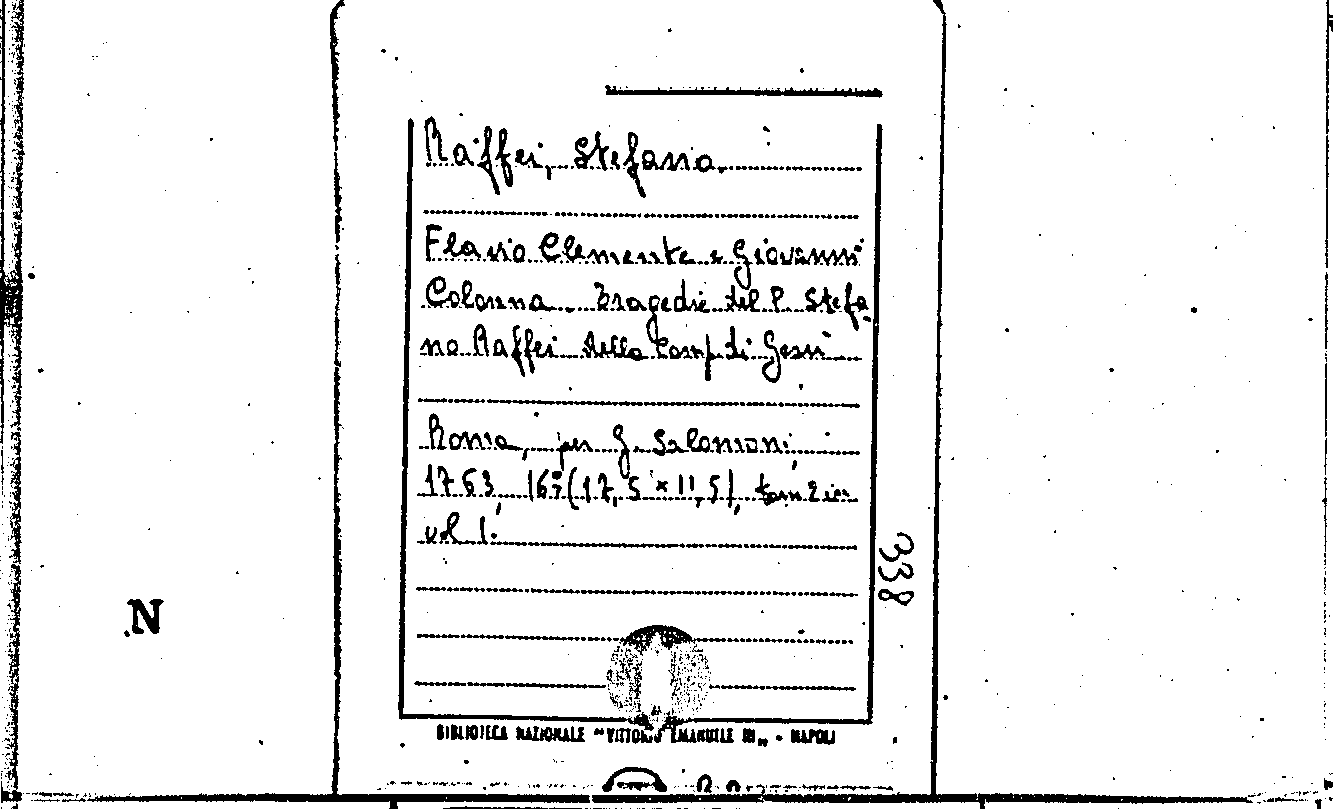 Raffei, Stefano.
Flavio Clemente e Giovanni
Colonna. Tragedie del P. Stefa
no Raffei della Comp. di Gesù
Roma, per G. Salomoni,
1763, 16° (17,5 x 11,5), tomi 2 in
vol 1.
338
N
BIBLIOTECA NAZIONALE "VITTORIO EMANUELE III" - NAPOLI